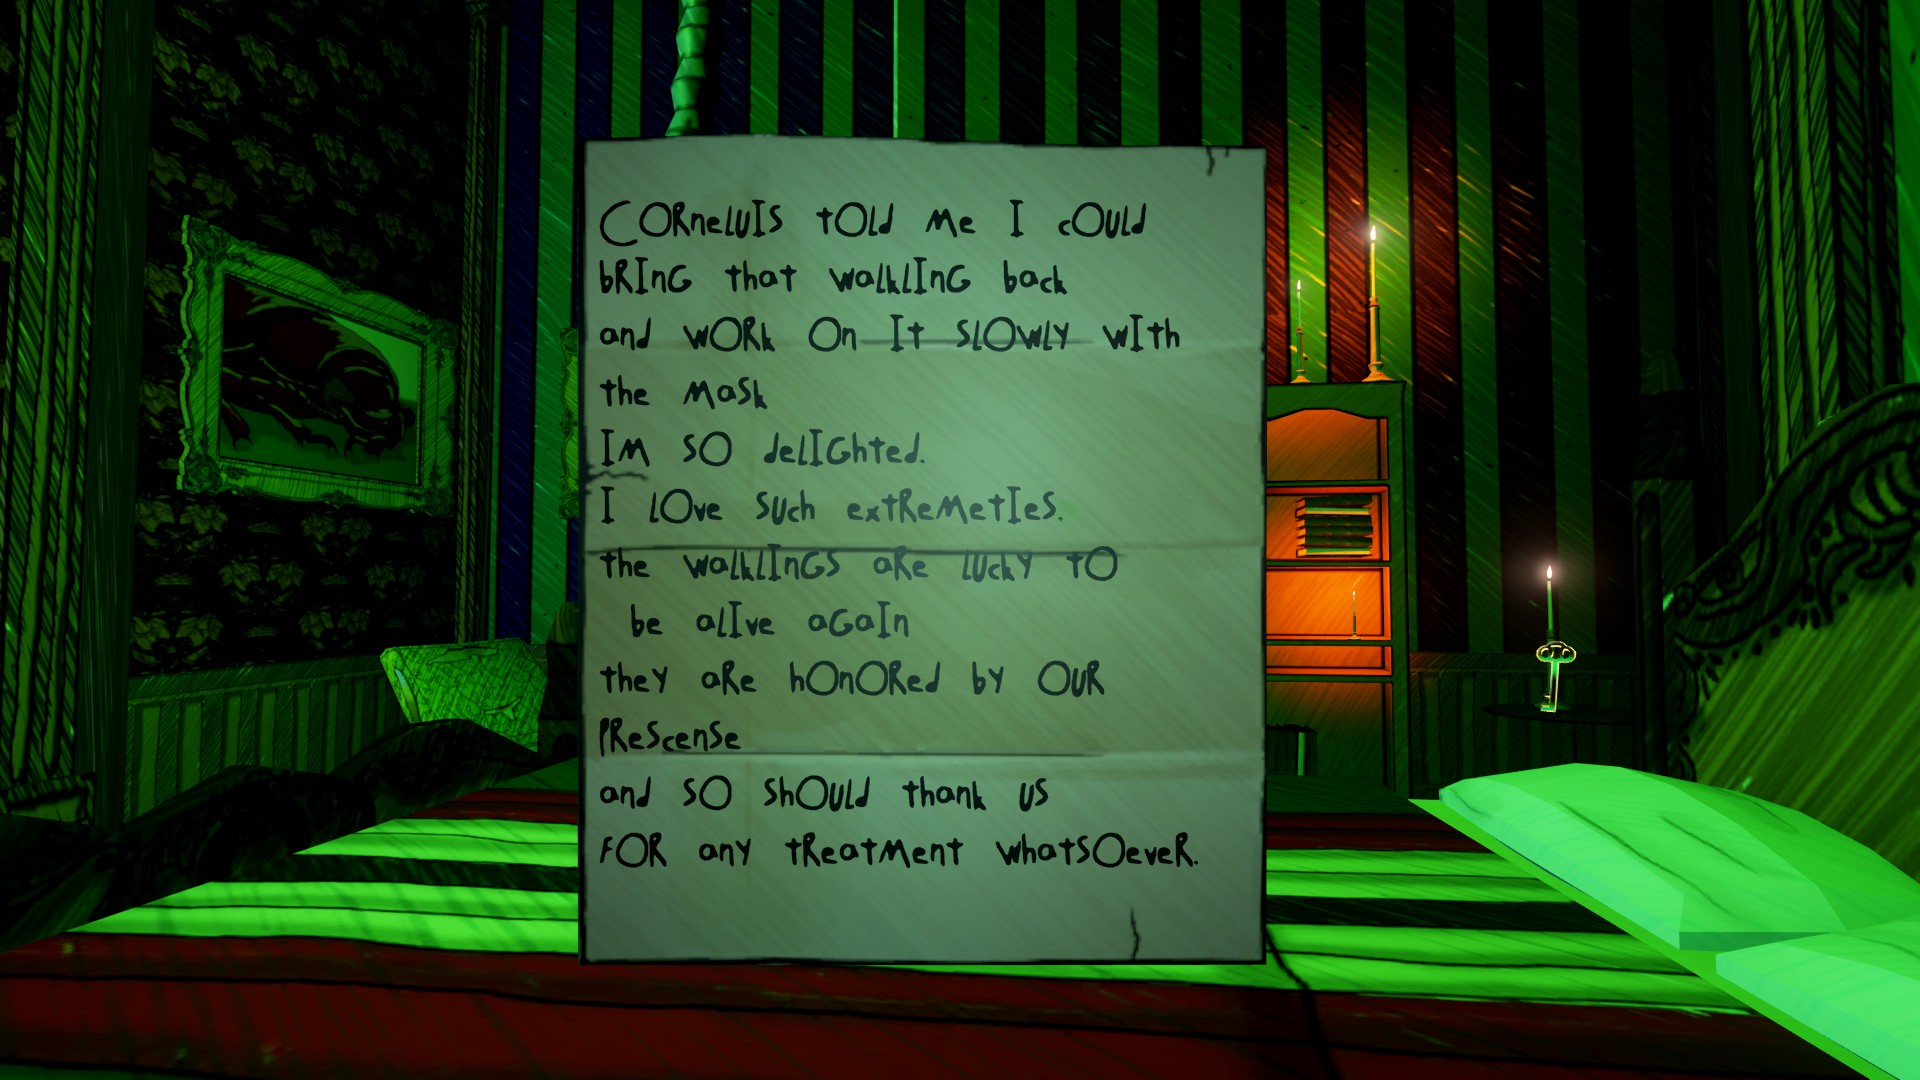 Corneluis told me I could
bring that walkling back
and work on it slowly with
the mask
Im so delighted.
I love such extremeties.
the walklings are lucky to
be alive again
they are honored by our
prescense
and so should thank us
for any treatment whatsoever.